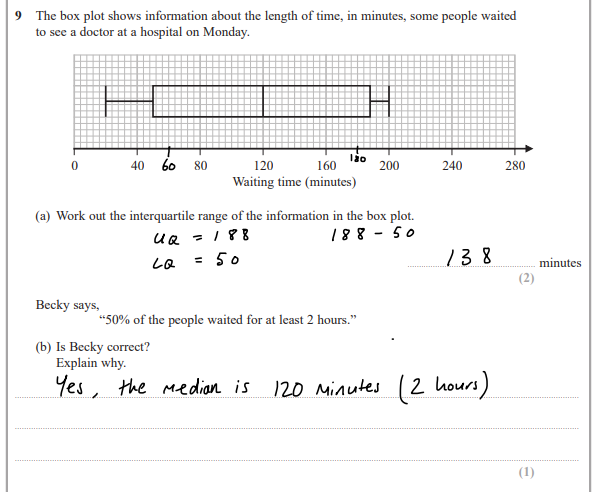 9 The box plot shows information about the length of time, in minutes, some people waited
to see a doctor at a hospital on Monday.
0 40 60 80 120 160 180 200 240 280
Waiting time (minutes)
(a) Work out the interquartile range of the information in the box plot.
UQ = 188 188 - 50
LQ = 50
138 minutes
(2)
Becky says,
“50% of the people waited for at least 2 hours.”
(b) Is Becky correct?
Explain why.
Yes, the median is 120 minutes (2 hours)
(1)